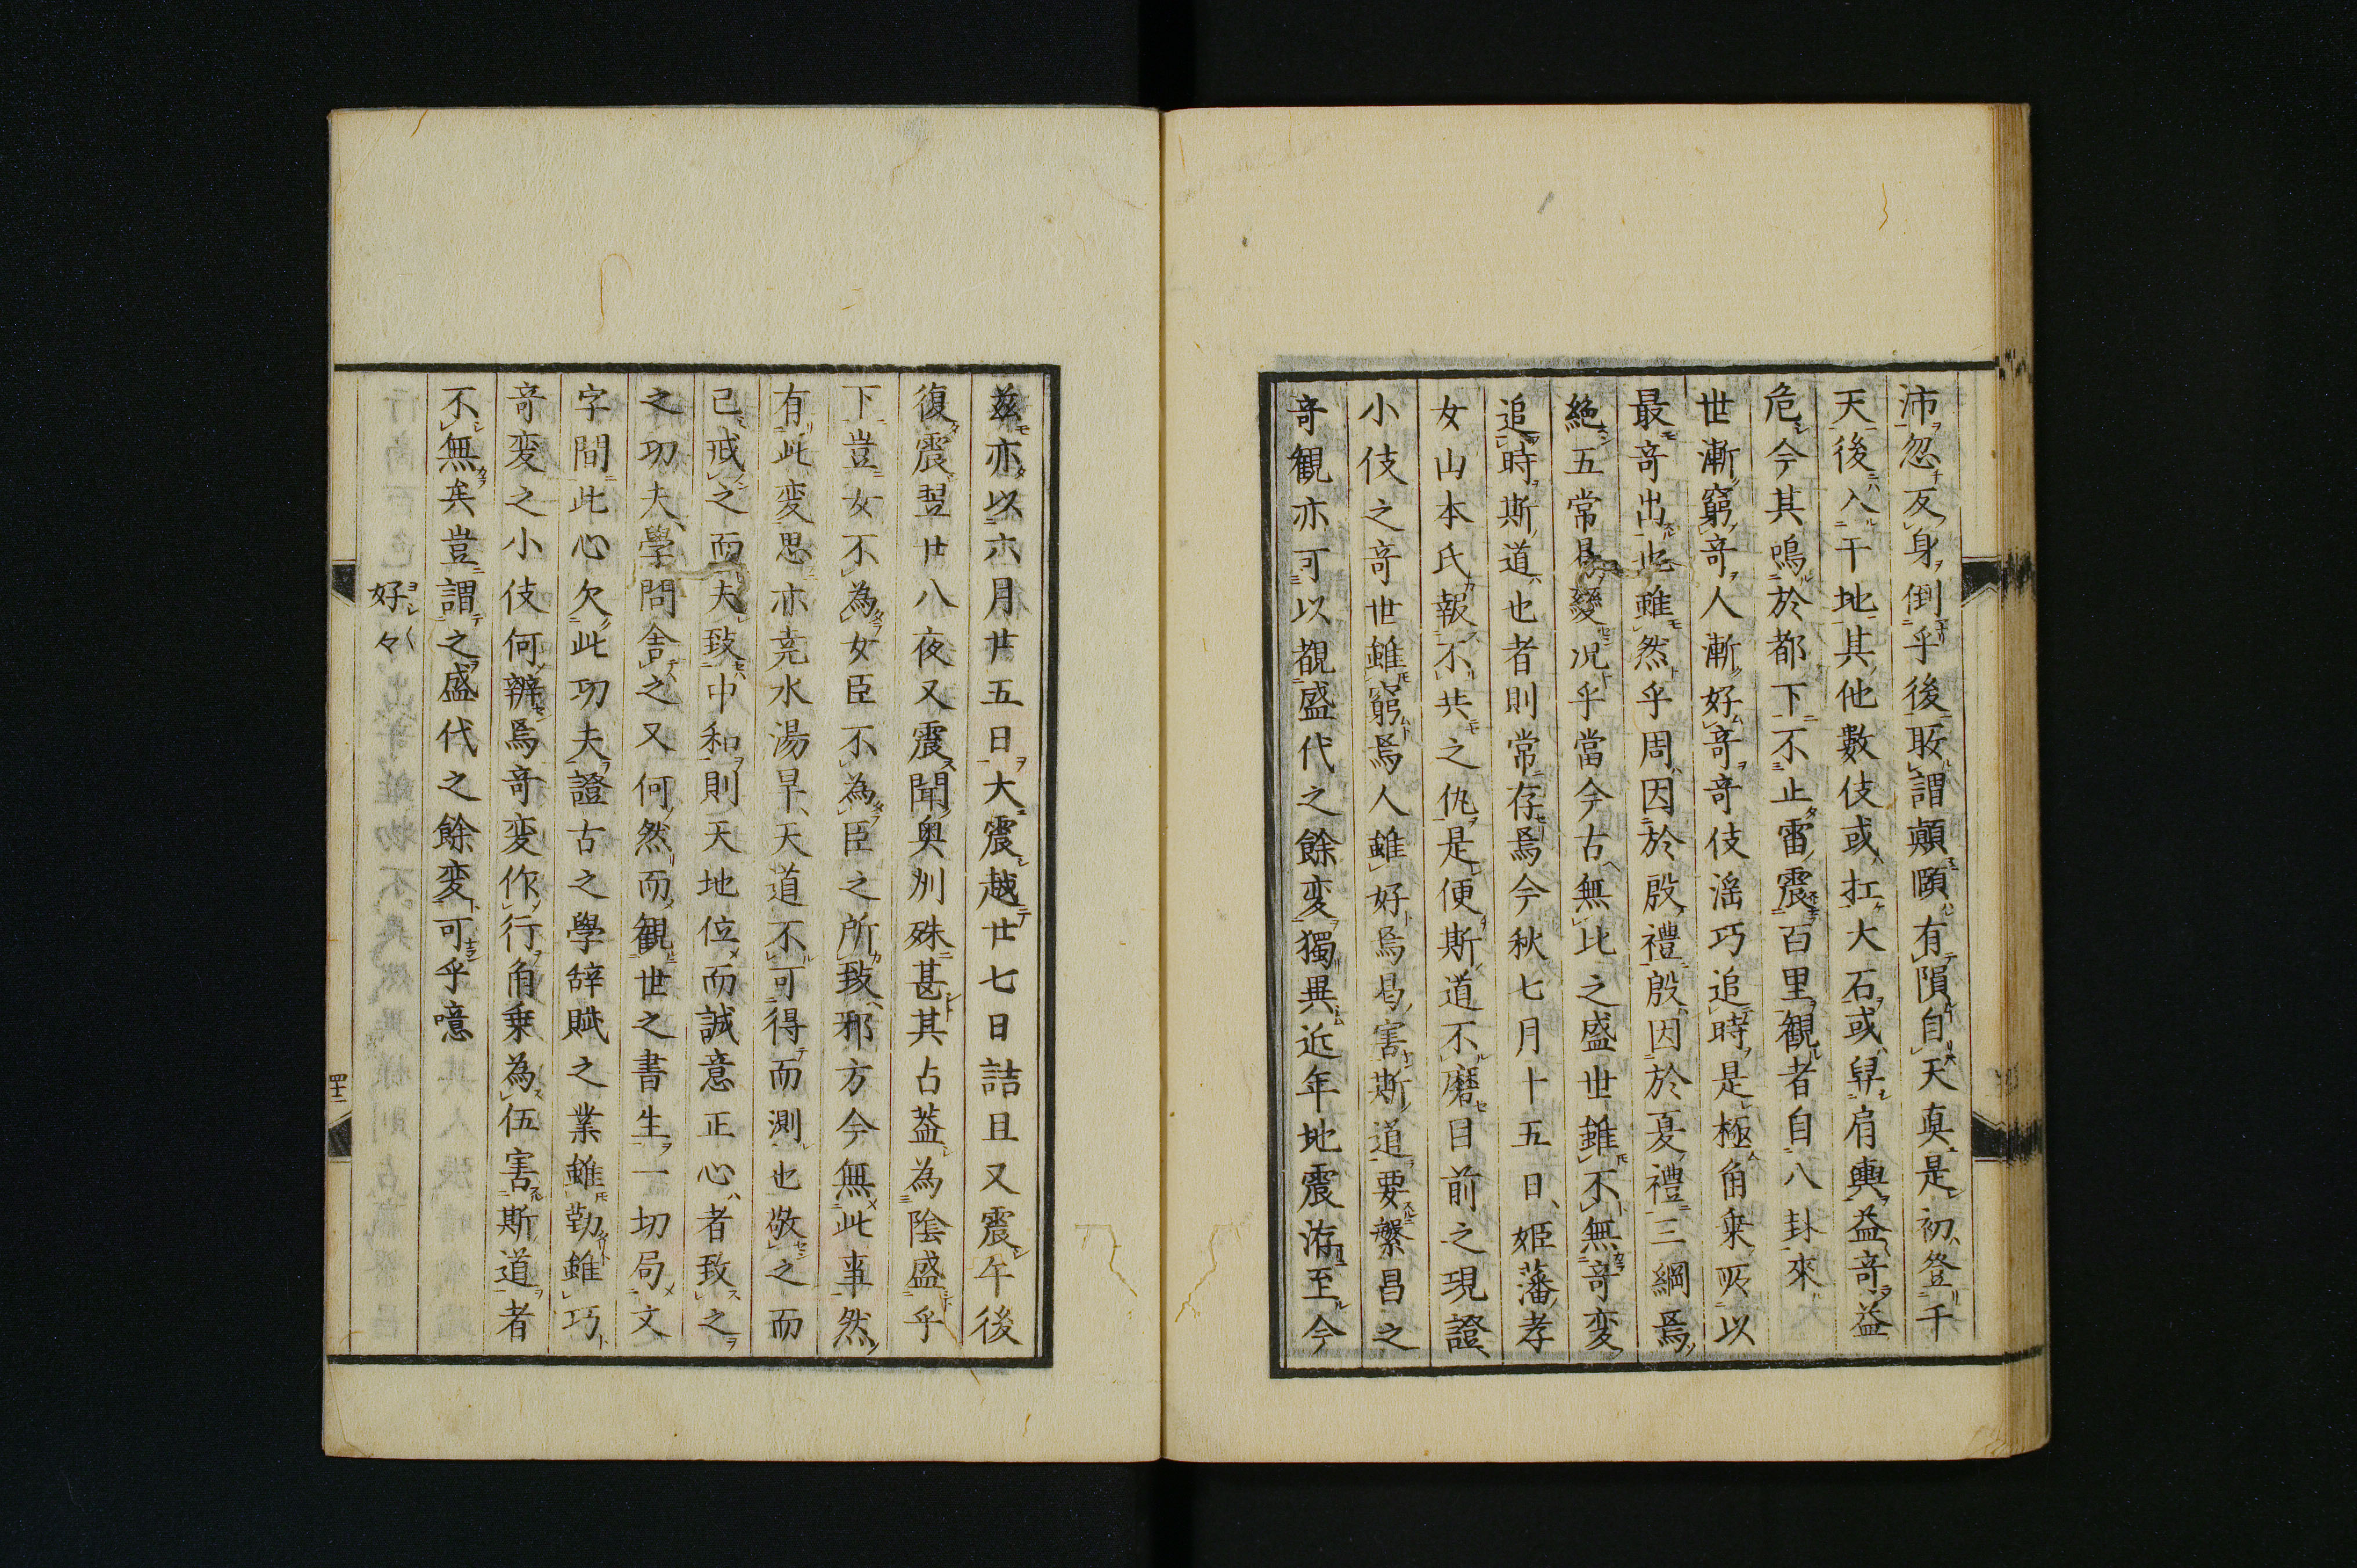 沛忽反身倒乎後㪽謂顛頤有隕自天真是初登千
天後入于地其他數伎或扛大石或舁肩輿益竒益
危今其鳴於都下不止雷震百里觀者自八封來
世漸窮竒人漸好竒竒伎滛巧追時是極角乗灰以
最竒出也雖然乎周因於殷禮殷因於夏禮三綱焉
絶五常曷變况乎當今古無比之盛世雖不無竒変
追時斯道也者則常存焉今秋七月十五日姫藩孝
女山本氏報不共之仇是便斯道不磨目前之現證
小伎之竒世雖窮焉人雖好焉曷害斯道要繋昌之
竒觀亦可以觀盛代之餘変獨異近年地震洊至今
玆亦以六月廿五日大震越廿七日詰且又震午後
復震翌廿八夜又震聞奥州殊甚其占葢為陰盛乎
下豈女不為女臣不為臣之所致邪方今無此事然
有此変思亦尭水湯旱天道不可得而測也敬之而
已戒之而夫致中和則天地位而誠意正心者致之
之功夫學問舎之又何然而觀世之書生一切局文
字間此心欠此功夫證古之學辞賦之業雖勤雖巧
竒変之小伎何辨焉竒変作行角乗為伍害斯道者
不無矣豈謂之盛代之餘変可乎噫
好々
四十二